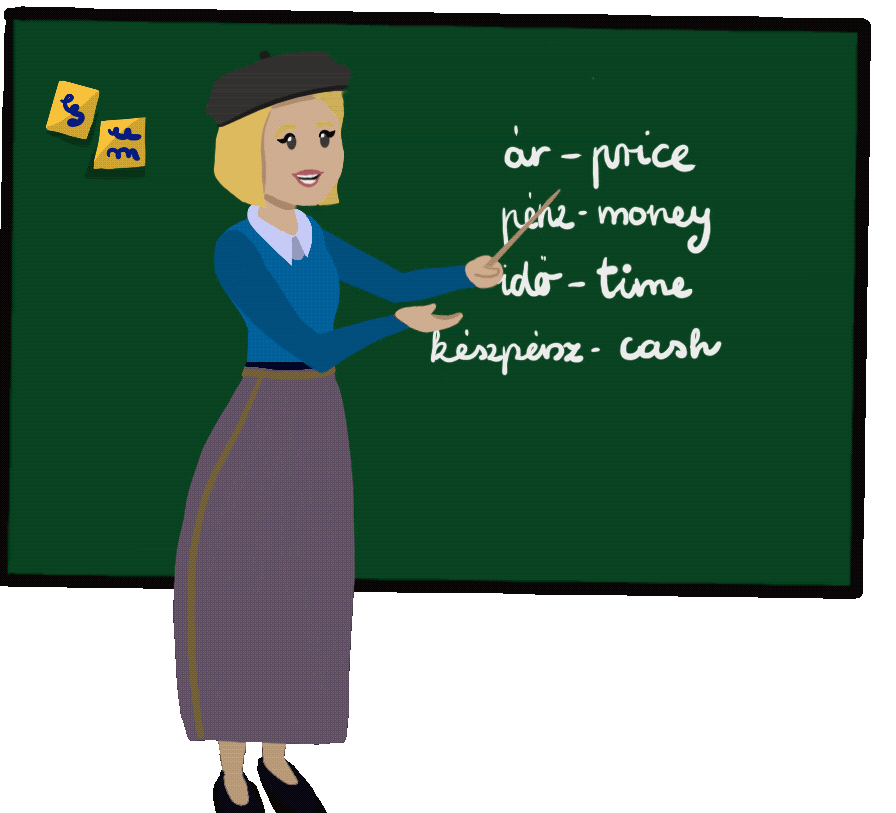 ár - price
pénz - money
idő - time
készpénz - cash